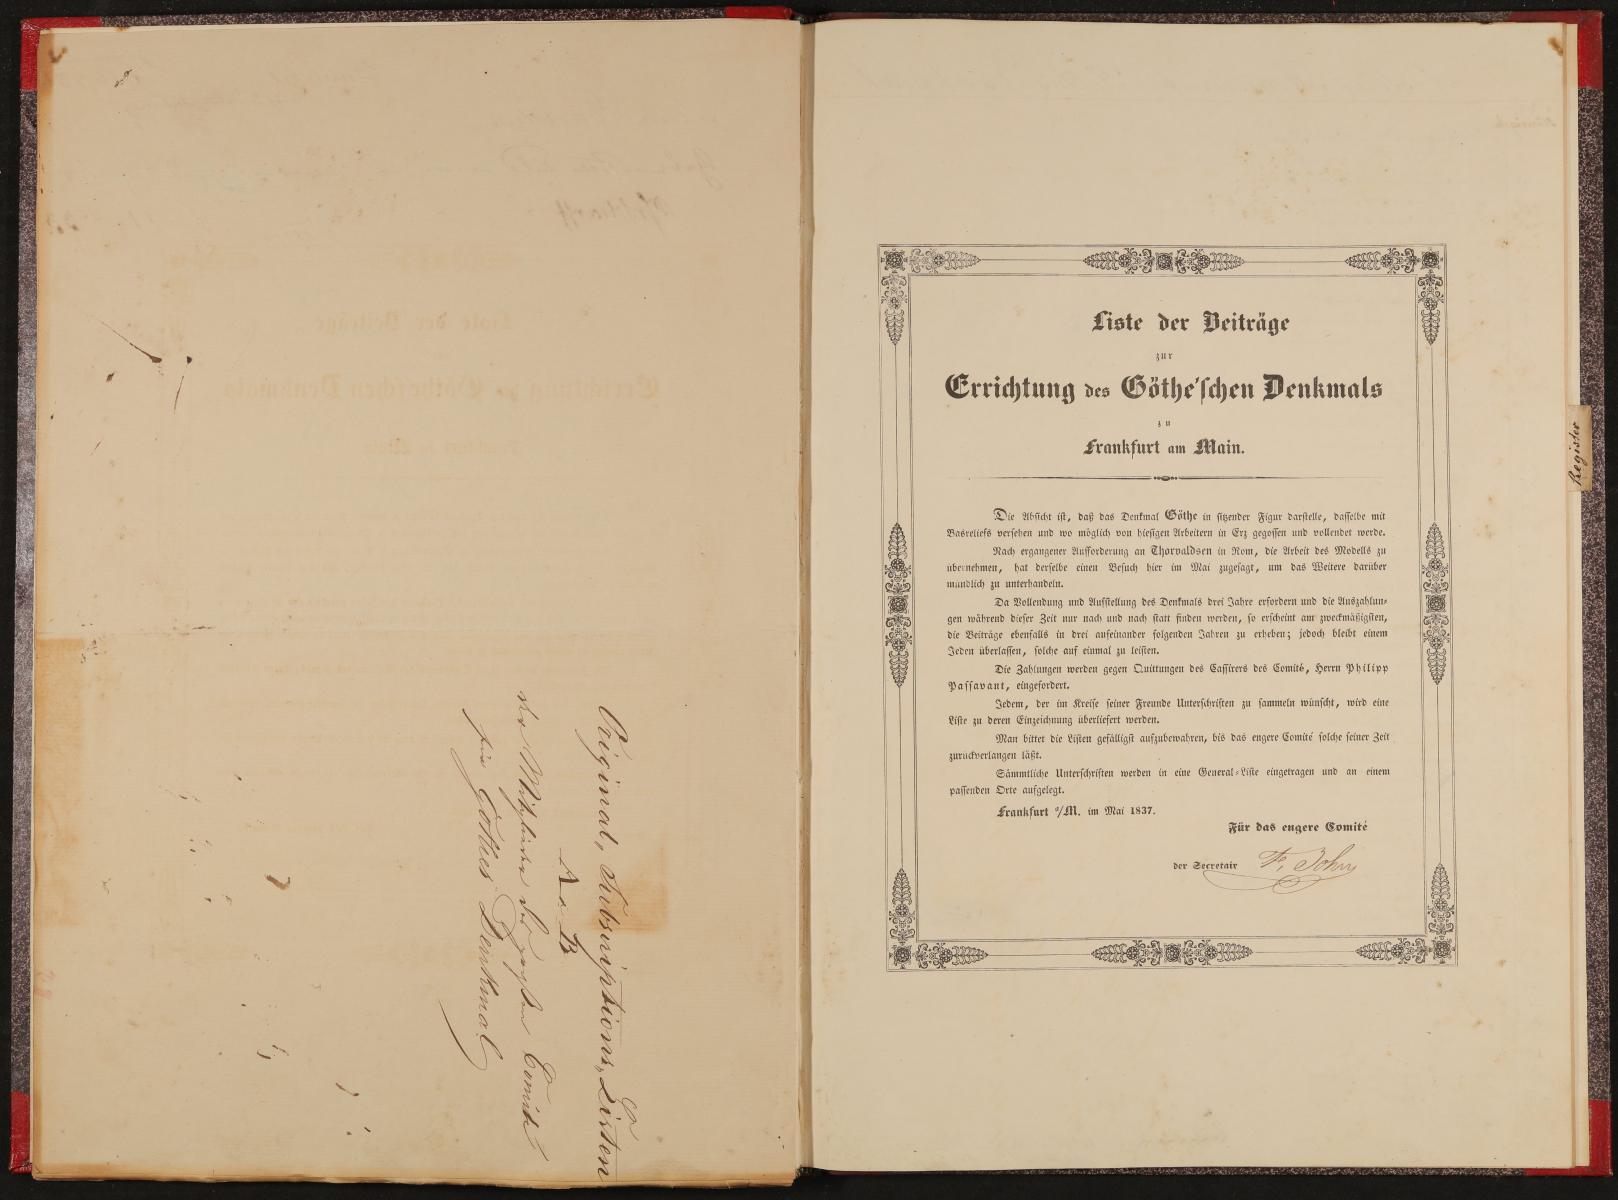 Original-Subscriptions-Listen
A–B
der Mitglieder des großen Comité
für Göthes Denkmal
Liste der Beiträge
zur
Errichtung des Göthe'schen Denkmals
zu
Frankfurt am Main.
Die Absicht ist, daß das Denkmal Göthe in sitzender Figur darstelle, dasselbe mit
Basreliefs versehen und wo möglich von hiesigen Arbeitern in Erz gegossen und vollendet werde.
Nach ergangener Aufforderung an Thorvaldsen in Rom, die Arbeit des Modells zu
übernehmen, hat derselbe einen Besuch hier im Mai zugesagt, um das Weitere darüber
mündlich zu unterhandeln.
Da Vollendung und Aufstellung des Denkmals drei Jahre erfordern und die Auszahlun-
gen während dieser Zeit nur nach und nach statt finden werden, so erscheint am zweckmäßigsten,
die Beiträge ebenfalls in drei aufeinander folgenden Jahren zu erheben; jedoch bleibt einem
Jeden überlassen, solche auf einmal zu leisten.
Die Zahlungen werden gegen Quittungen des Cassirers des Comité, Herrn Philipp
Passavant, eingefordert.
Jedem, der im Kreise seiner Freunde Unterschriften zu sammeln wünscht, wird eine
Liste zu deren Einzeichnung überliefert werden.
Man bittet die Listen gefälligst aufzubewahren, bis das engere Comité solche seiner Zeit
zurückverlangen läßt.
Sämmtliche Unterschriften werden in eine General-Liste eingetragen und an einem
passenden Orte aufgelegt.
Frankfurt a/M. im Mai 1837.
Für das engere Comité
der Secretair F. John
Register